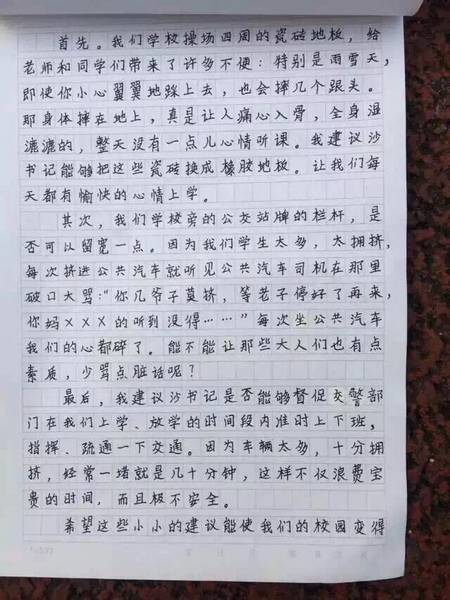 首先。我们学校操场四周的瓷砖地板，给
老师和同学们带来了许多不便：特别是雨雪天，
即使你小心翼翼地踩上去，也会摔几个跟头。
那身体摔在地上，真是让人痛心入骨，全身湿
漉漉的，整天没有一点儿心情听课。我建议沙
书记能够把这些瓷砖换成橡胶地板。让我们每
天都有愉快的心情上学。
其次，我们学校旁的公交站牌的栏杆，是
否可以留宽一点。因为我们学生太多，太拥挤，
每次挤进公共汽车就听见公共汽车司机在那里
破口大骂：“你几爷子莫挤，等老子停好了再来，
你妈×××的听到没得……”每次坐公共汽车
我们的心都碎了。能不能让那些大人们也有点
素质，少骂点脏话呢？
最后，我建议沙书记是否能够督促交警部
门在我们上学、放学的时间段内准时上下班，
指挥、疏通一下交通。因为车辆太多，十分拥
挤，经常一堵就是几十分钟，这样不仅浪费宝
贵的时间，而且极不安全。
希望这些小小的建议能使我们的校园变得